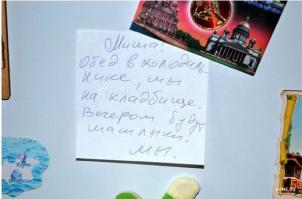 Миша!
Обед в холодиль-
нике, мы
на кладбище.
Вечером будут
шашлыки.
Мы.